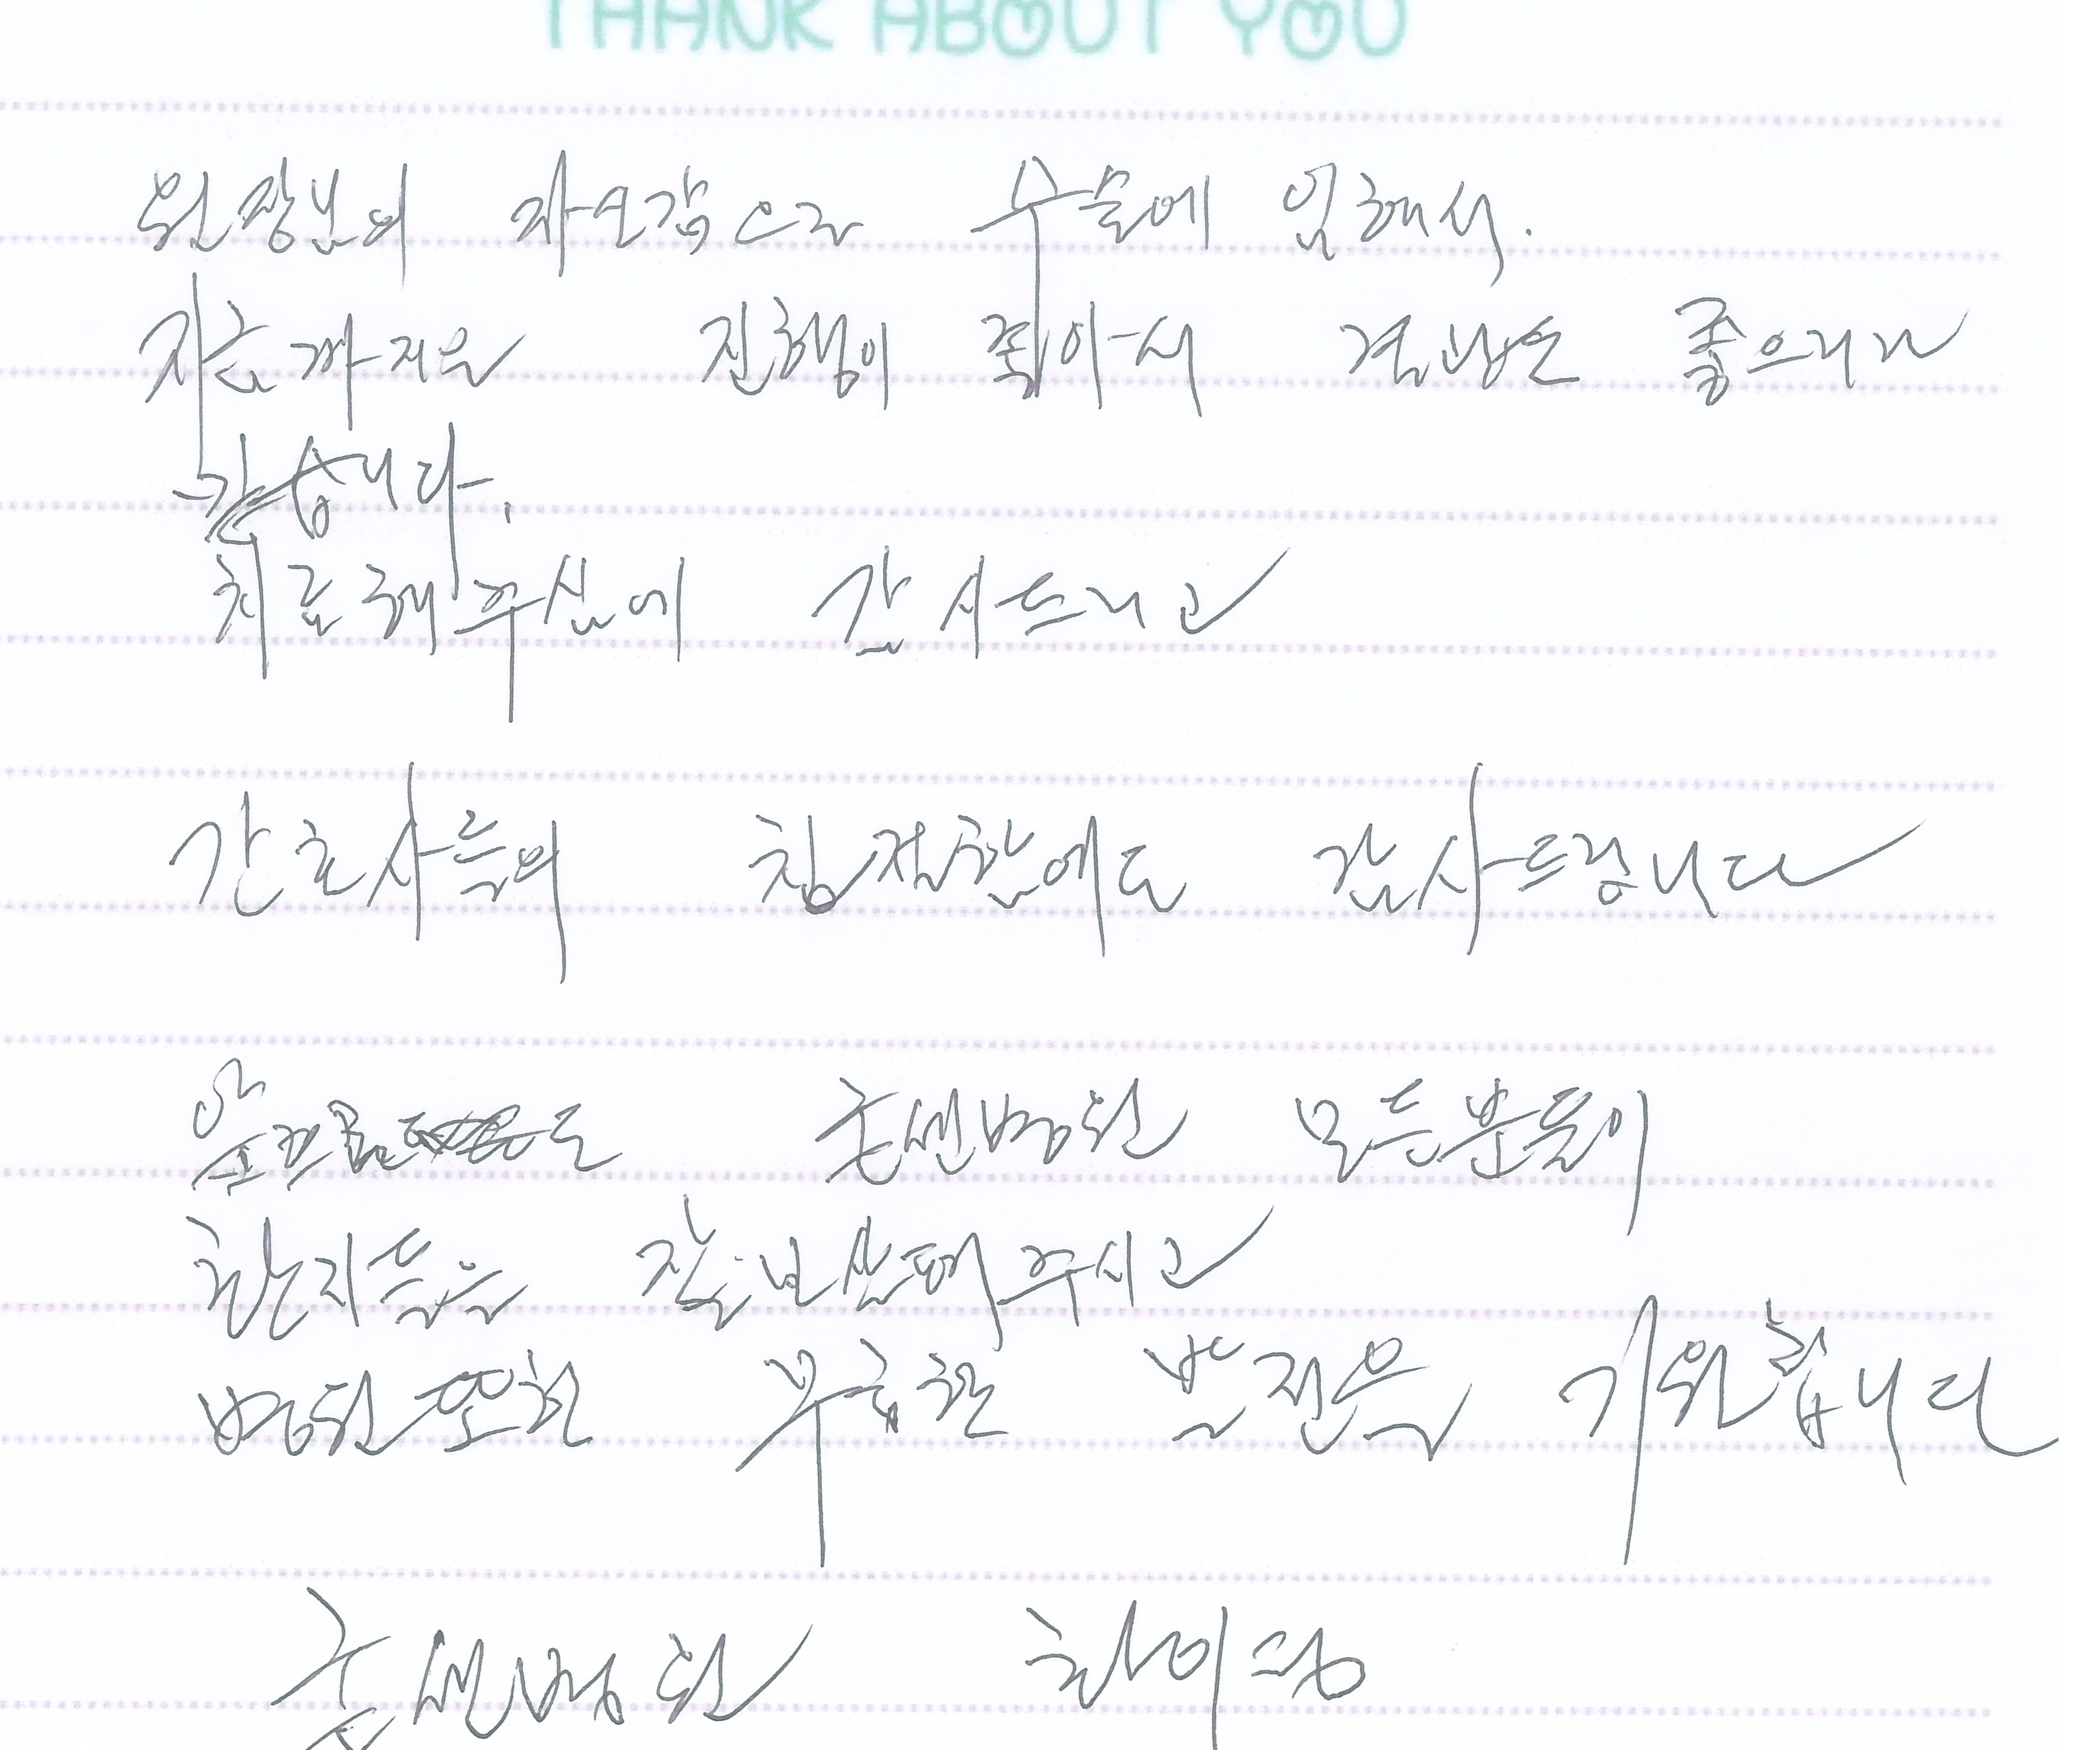 THANK ABOUT YOU
원장님의 자신감으로 수술에 임해서.
지금까지은 진행이 좋아서 결과도 좋으리라
같습니다.
치료해주심에 감사드리고
간호사들의 친절함에도 감사드립니다
앞으로도 굿센병원 모든분들이
환자들을 잘 보살펴주시고
병원또한 무궁한 발전을 기원합니다
굿센병원 화이팅